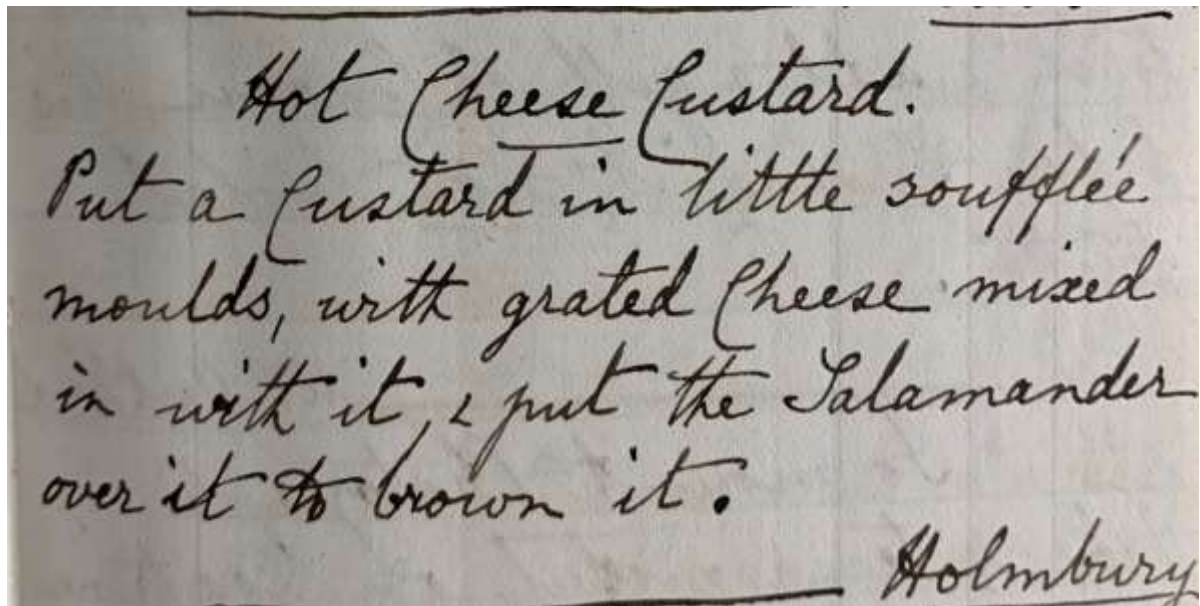 Hot Cheese Custard.
Put a Custard in little soufflée
moulds, with grated Cheese mixed
in with it, & put the Salamander
over it to brown it.
Holmbury